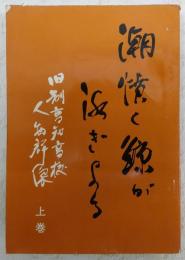 潮慣く鯨が
泳ぎよる
旧制高知高校
人物群像
上巻